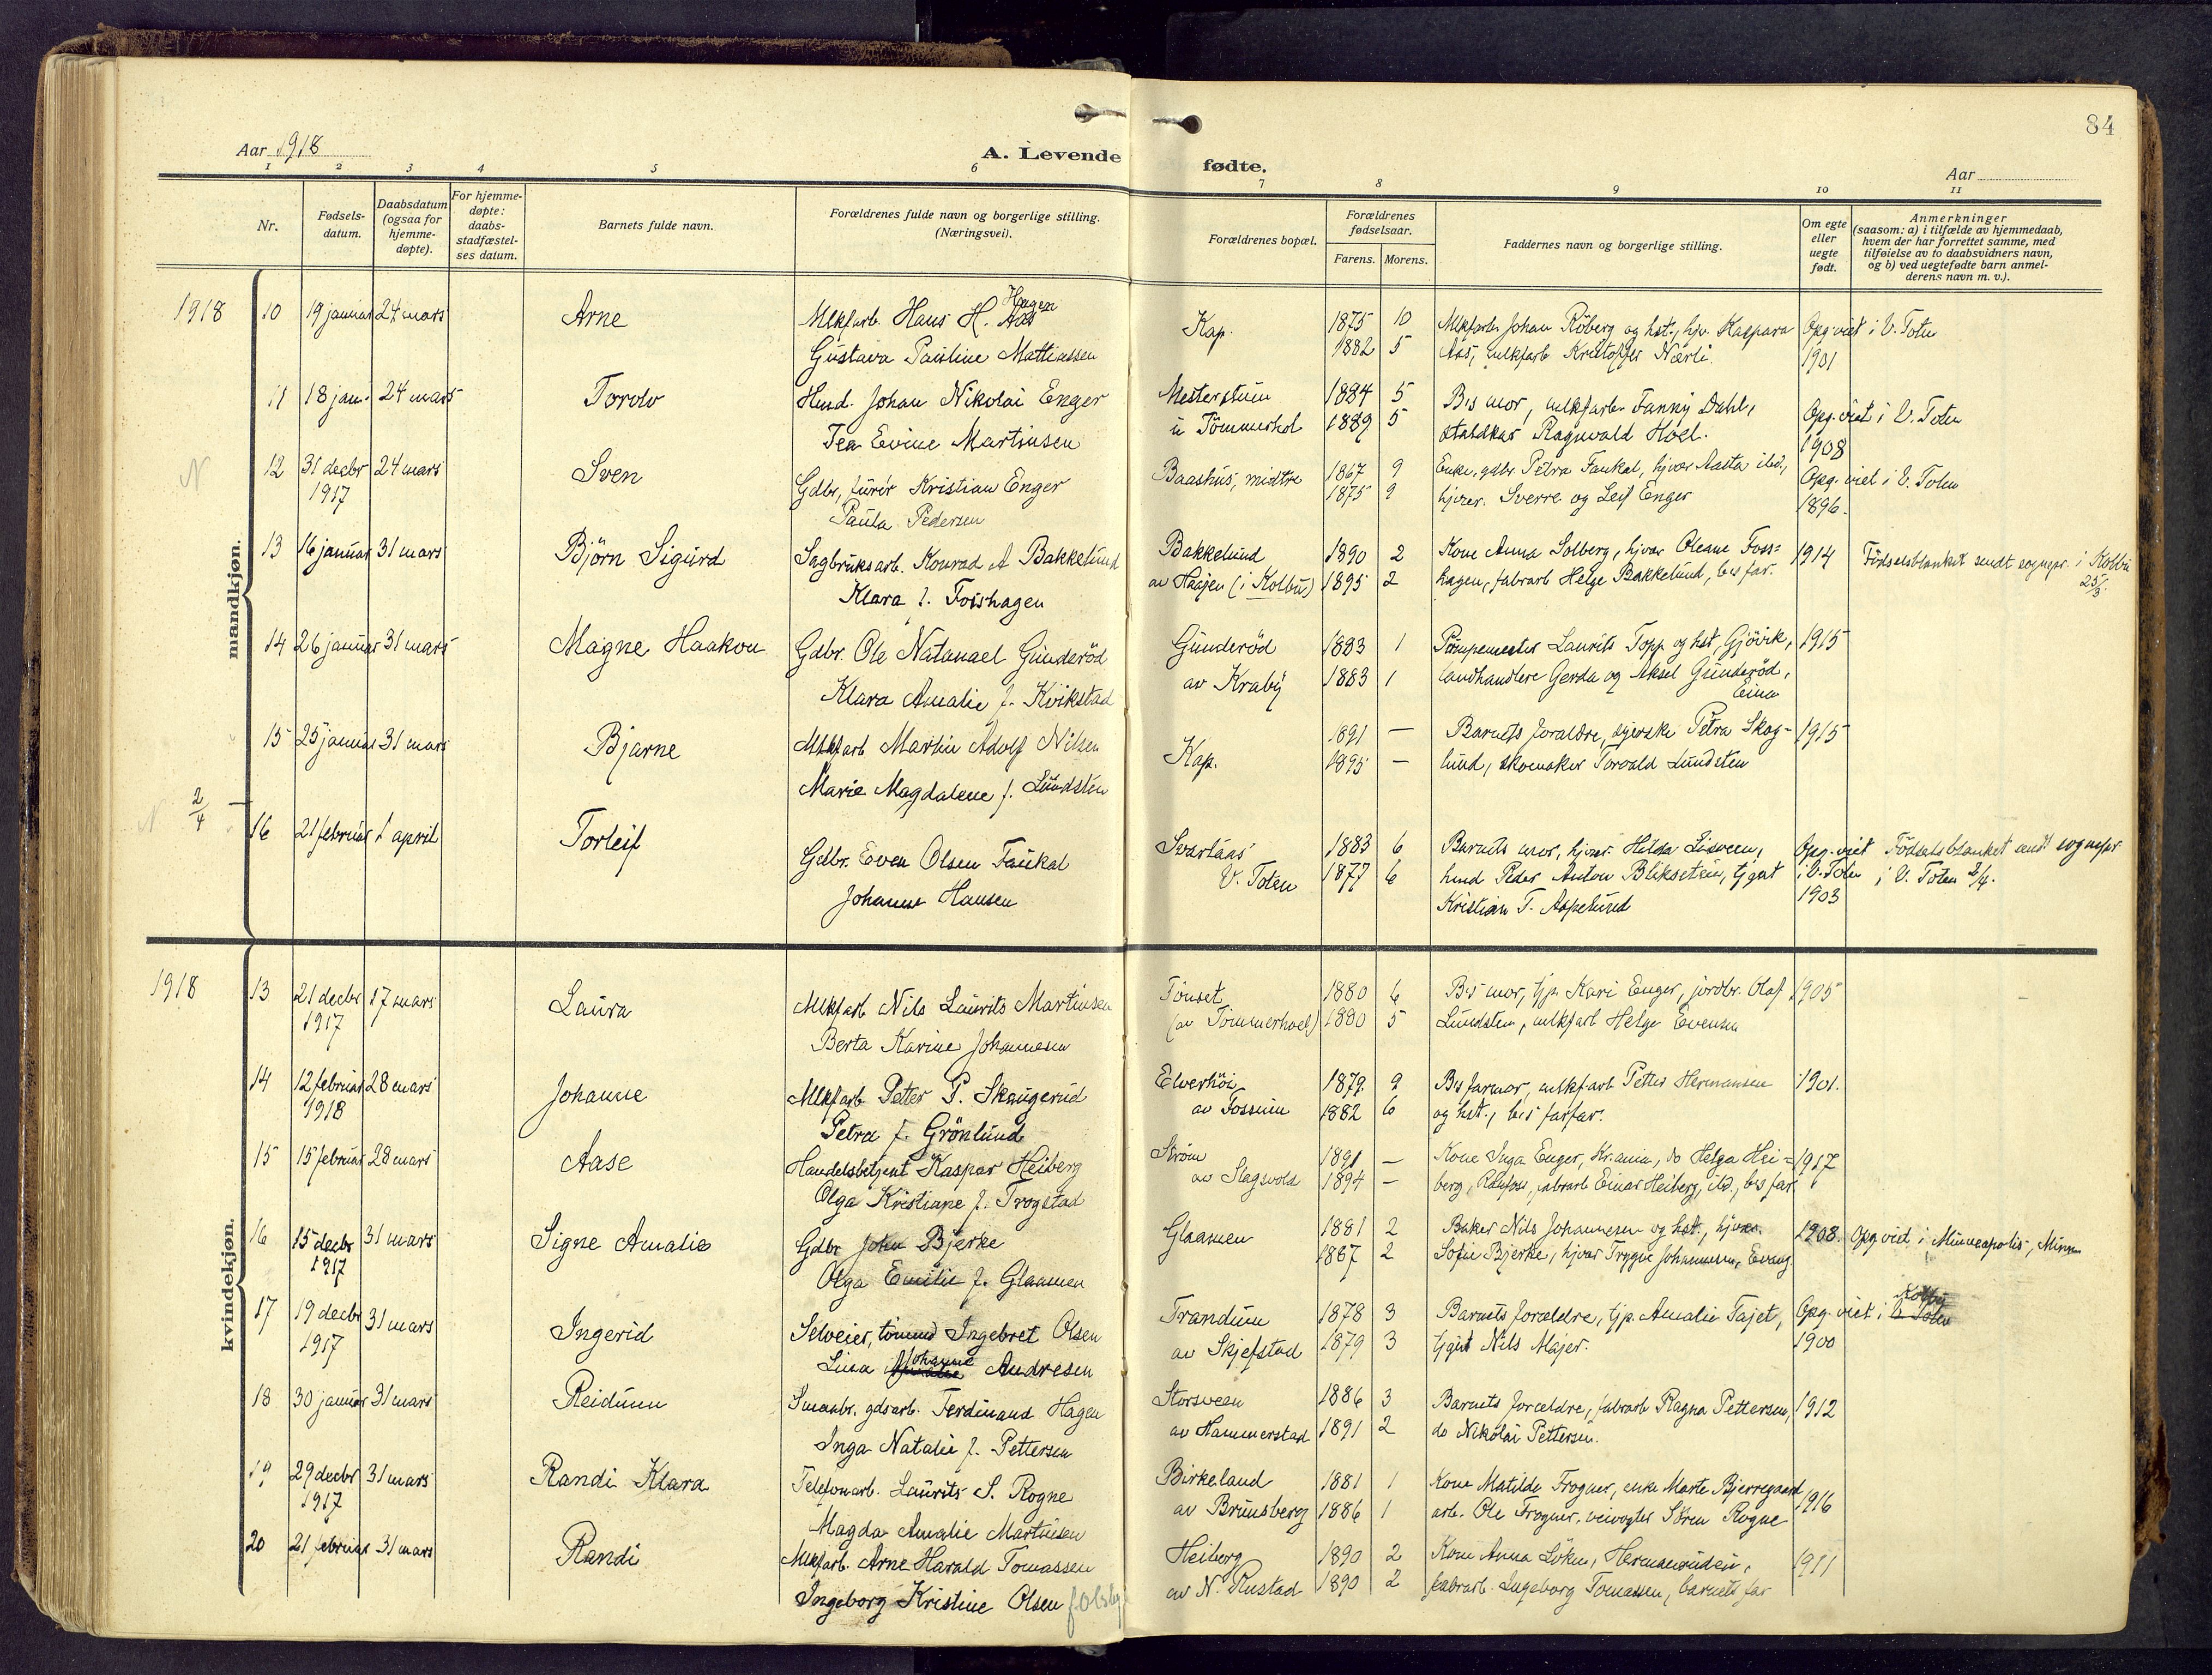 84
Aar 1918
A. Levende fødte.
Aar
1 2 3 4 5 6 7 8 9 10 11
Nr.
Fødsels-
datum.
Daabsdatum
(ogsaa for
hjemme-
døpte).
For hjemme-
døpte:
daabs-
stadfæstel-
ses datum.
Barnets fulde navn.
Forældrenes fulde navn og borgerlige stilling.
(Næringsvei).
Forældrenes bopæl.
Forældrenes
fødselsaar.
Farens. Morens.
Faddernes navn og borgerlige stilling.
Om egte
eller
uegte
født.
Anmerkninger
(saasom: a) i tilfælde av hjemmedaab,
hvem der har forrettet samme, med
tilføielse av to daabsvidners navn,
og b) ved uegtefødte barn anmel-
derens navn m. v.).
mandkjøn.
1918 10 19 januar 24 mars Arne Mlkfarb. Hans H. Aas Hagen Kap. 1875 10 Mlkfarb. Johan Röberg og hst., hjv. Kaspara Opg. viet i V. Toten
Gustava Pauline Mattiassen 1882 5 Aas, mlkfarb Kristoffer Nærli. 1901
11 18 jan. 24 mars Tordv Husd. Johan Nikolai Enger 1884 5 B's mor, mlkfarb. Fanny Dahl, Opg. viet i V. Toten
Tea Evine Martinsen u Tömmerhol 1889 5 staldkar Ragnvald Hoel. 1908
N 12 31 decbr 24 mars Sven Gdbr, furér Kristian Enger Baashus, midtre 1867 9 Enke, gdbr. Petra Faukal, hjvær Aasta ibd, Opg. viet i V. Toten
1917 Paula Pedersen 1875 9 hjvær. Sverre og Leif Enger 1896.
13 16 januar 31 mars Björn Sigurd Sagbruksarb. Konrad A Bakkelund Bakkelund 1890 2 Kone Anna Solberg, hjvær Oleane Foss= 1914 Födselsblanket sendt sognepr. i Kolbu
Klara f. Fosshagen av Haajen (i Kolbu) 1895 2 hagen, fabrarb Helge Bakkelund, b's far. 25/3.
14 26 januar 31 mars Magne Haakon Gdbr. Ole Natanael Gunderöd Gunderöd 1883 1 Pumpemester Laurits Topp og hst, Gjövik, 1915
Klara Amalie f. Kvikstad av Kraby 1883 1 landhandlere Gerda og Aksel Gunderöd,
Eina
15 25 januar 31 mars Bjarne Mlkfarb Martin Adolf Nilsen Kap. 1891 — Barnets forældre, syerske Petra Skog- 1915
Marie Magdalene f. Lundsten 1895 — lund, skomaker Torvald Lundsten
N 2/4 16 21 februar 1 april Torleif Gdbr. Even Olsen Faukal Svartaas 1883 6 Barnets mor, hjvær. Hilda Lisveen, Opg. viet Födselsblanket sendt sognepr
Johanne Hansen V. Toten 1877 6 husd Peder Anton Bliksetün, tjgut i V. Toten i V. Toten 2/4.
Kristian T. Aspelund 1903
kvindekjøn.
1918 13 21 decbr 17 mars Laura Mlkfarb Nils Laurits Martinsen Tönset 1880 6 B's mor, tjp. Kari Enger, jordbr. Olaf 1905
1917 Berta Karine Johannesen (av Tömmerhoel) 1880 5 Lundsten, mlkfarb Helge Evensen
14 12 februar 28 mars Johanne Mlkfarb Petter P. Skaugerud Elverhöi 1879 9 B's farmor, mlkfarb Petter Hermansen 1901.
1918 Petra f. Grönlund av Fossum 1882 6 og hst., b's farfar.
15 15 februar 28 mars Aase Handelsbetjent Kaspar Heiberg Ström 1891 — Kone Inga Enger, Kr.ania, do Helga Hei= 1917
Olga Kristiane f. Trogstad av Slagsvold 1894 — berg, Raufoss, fabrarb Einar Heiberg, ibd., b's far
16 15 decbr 31 mars Signe Amalie Gdbr John Bjerke Glaamen 1881 2 Baker Nils Johannesen og hst., hjvær. 1908. Opg viet i Minneapolis, Minn
1917 Olga Emilie f. Glaamen 1887 2 Sofie Bjerke, hjvær Trygve Johannesen, Evang.
17 19 decbr 31 mars Ingerid Selveier, tömmd Ingebret Olsen Trandum 1878 3 Barnets forældre, tjp. Amalie Fajet, Opg. viet i V. Toten Kolbu
1917 Lina Johanne Andresen av Skjefstad 1879 3 tjgut Nils Majer. 1900
18 30 januar 31 mars Reidunn Smaabr. gdsarb. Ferdinand Hagen Storsveen 1886 3 Barnets forældre, fabrarb Ragna Pettersen, 1912
Inga Natalie f. Pettersen av Hammerstad 1891 2 do Nikolai Pettersen.
19 29 decbr 31 mars Randi Klara Telefonarb. Laurits S. Rogne Birkeland 1881 1 Kone Matilde Frogner, enke Marte Bjerregaard
1917 Magda Amalie Martinsen av Brunsberg 1886 1 arb. Ole Frogner, veivogter Sören Rogne 1916
20 21 februar 31 mars Randi Mlkfarb. Arne Harald Tomassen Heiberg 1890 2 Kone Anna Löken, 1911
Ingeborg Kristine Olsen f. Olsby av N. Rustad 1890 2 fabrarb. Ingeborg Tomassen, barnets far